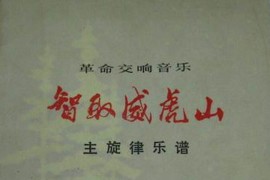 革命交响音乐
智取威虎山
主旋律乐谱